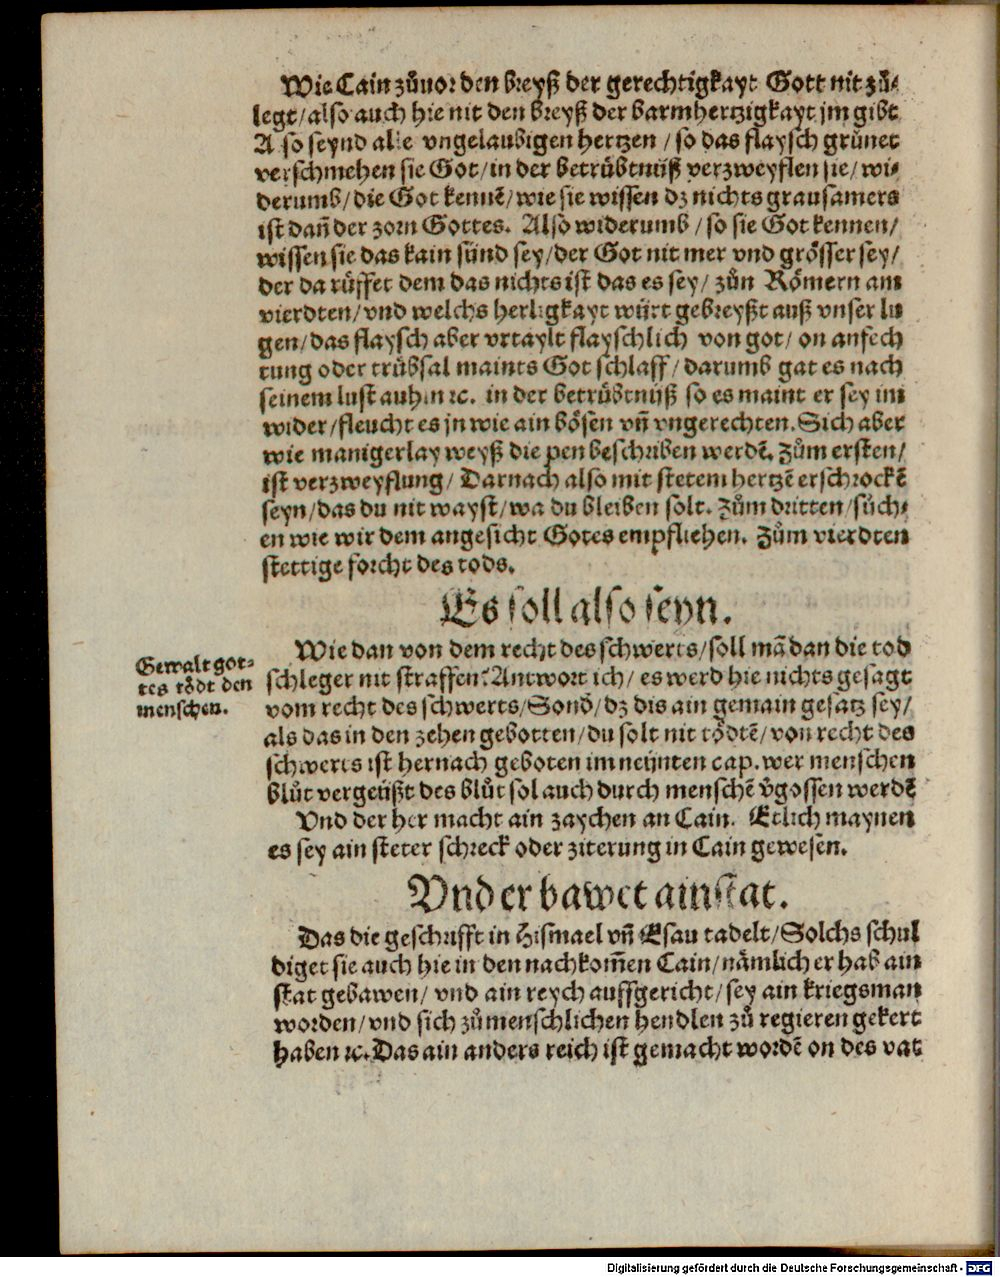 Wie Cain zůuor den breyß der gerechtigkayt Gott nit zů-
legt/also auch hie nit den breyß der barmhertzigkayt jm gibt
Also seynd alle vngelaubigen hertzen / so das flaysch grůnet
verschmehen sie Got/in der betrůbtnüß verzweyflen sie/ wi-
derumb/die Got kennē/wie sie wissen dz nichts grausamers
ist dañ der zorn Gottes. Also widerumb /so sie Got kennen/
wissen sie das kain sünd sey/der Got nit mer vnd grösser sey/
der da růffet dem das nichts ist das es sey/ zůn Römern am
vierdten/vnd welchs herligkayt würt gebreyßt auß vnser lu
gen/das flaysch aber vrtaylt flayschlich von got/ on anfech
tung oder trůbsal maints Got schlaff/darumb gat es nach
seinem lust auhin ꝛc. in der betrůbtnüß so es maint er sey im
wider/fleucht es jn wie ain bösen vñ vngerechten. Sich aber
wie manigerlay weyß die pen beschriben werdē. Zům ersten/
ist verzweyflung/ Darnach also mit stetem hertzē erschrockē
seyn/das du nit wayst/wa du bleiben solt. Zům dritten/sůch-
en wie wir dem angesicht Gotes empfliehen. Zům vierdten
stettige forcht des tods.
Es soll also seyn.
Wie dan von dem recht des schwerts/soll mā dan die tod
schleger nit straffen? Antwort ich/ es werd hie nichts gesagt
vom recht des schwerts/Sond̄/dz dis ain gemain gesatz sey/
als das in den zehen gebotten/du solt nit tödtē/von recht des
schwerts ist hernach geboten im neünten cap. wer menschen
blůt vergeüßt des blůt sol auch durch menschē v̄gossen werdē
Gewalt got-
tes tödt den
menschen.
Vnd der her macht ain zaychen an Cain. Etlich maynen
es sey ain steter schreck oder ziterung in Cain gewesen.
Vnd er bawet ain stat.
Das die geschrifft in Hismael vñ Esau tadelt/Solchs schul
diget sie auch hie in den nachkom̄en Cain/nämlich er hab ain
stat gebawen/ vnd ain reych auffgericht/sey ain kriegsman
worden/vnd sich zů menschlichen hendlen zů regieren gekert
haben ꝛc. Das ain anders reich ist gemacht wordē on des vat
Digitalisierung gefördert durch die Deutsche Forschungsgemeinschaft - DFG